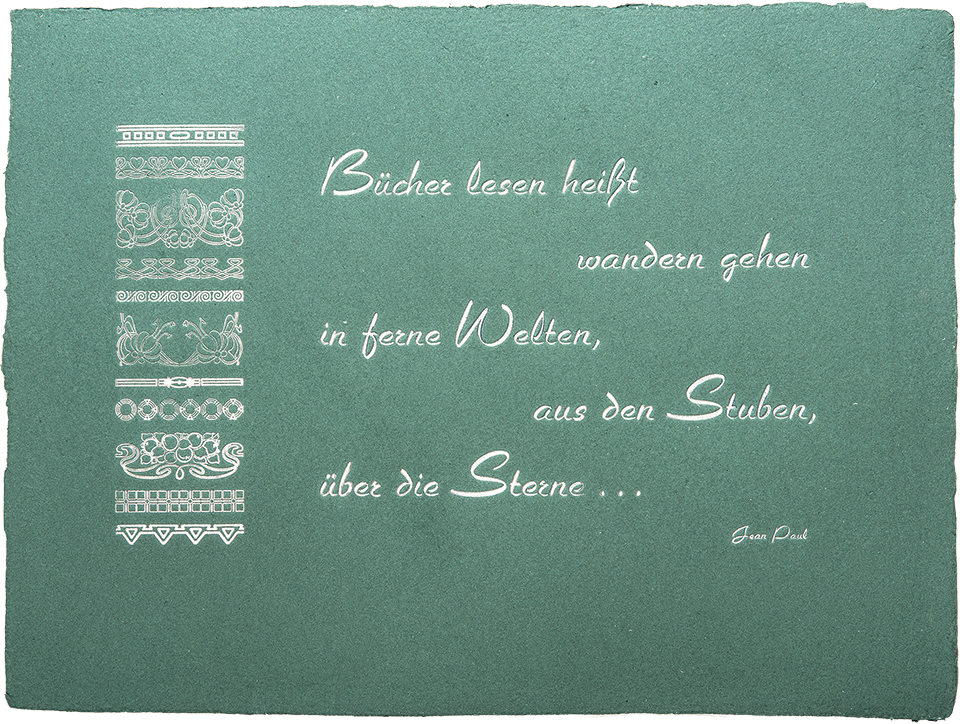 Bücher lesen heißt
wandern gehen
in ferne Welten,
aus den Stuben,
über die Sterne ...
Jean Paul